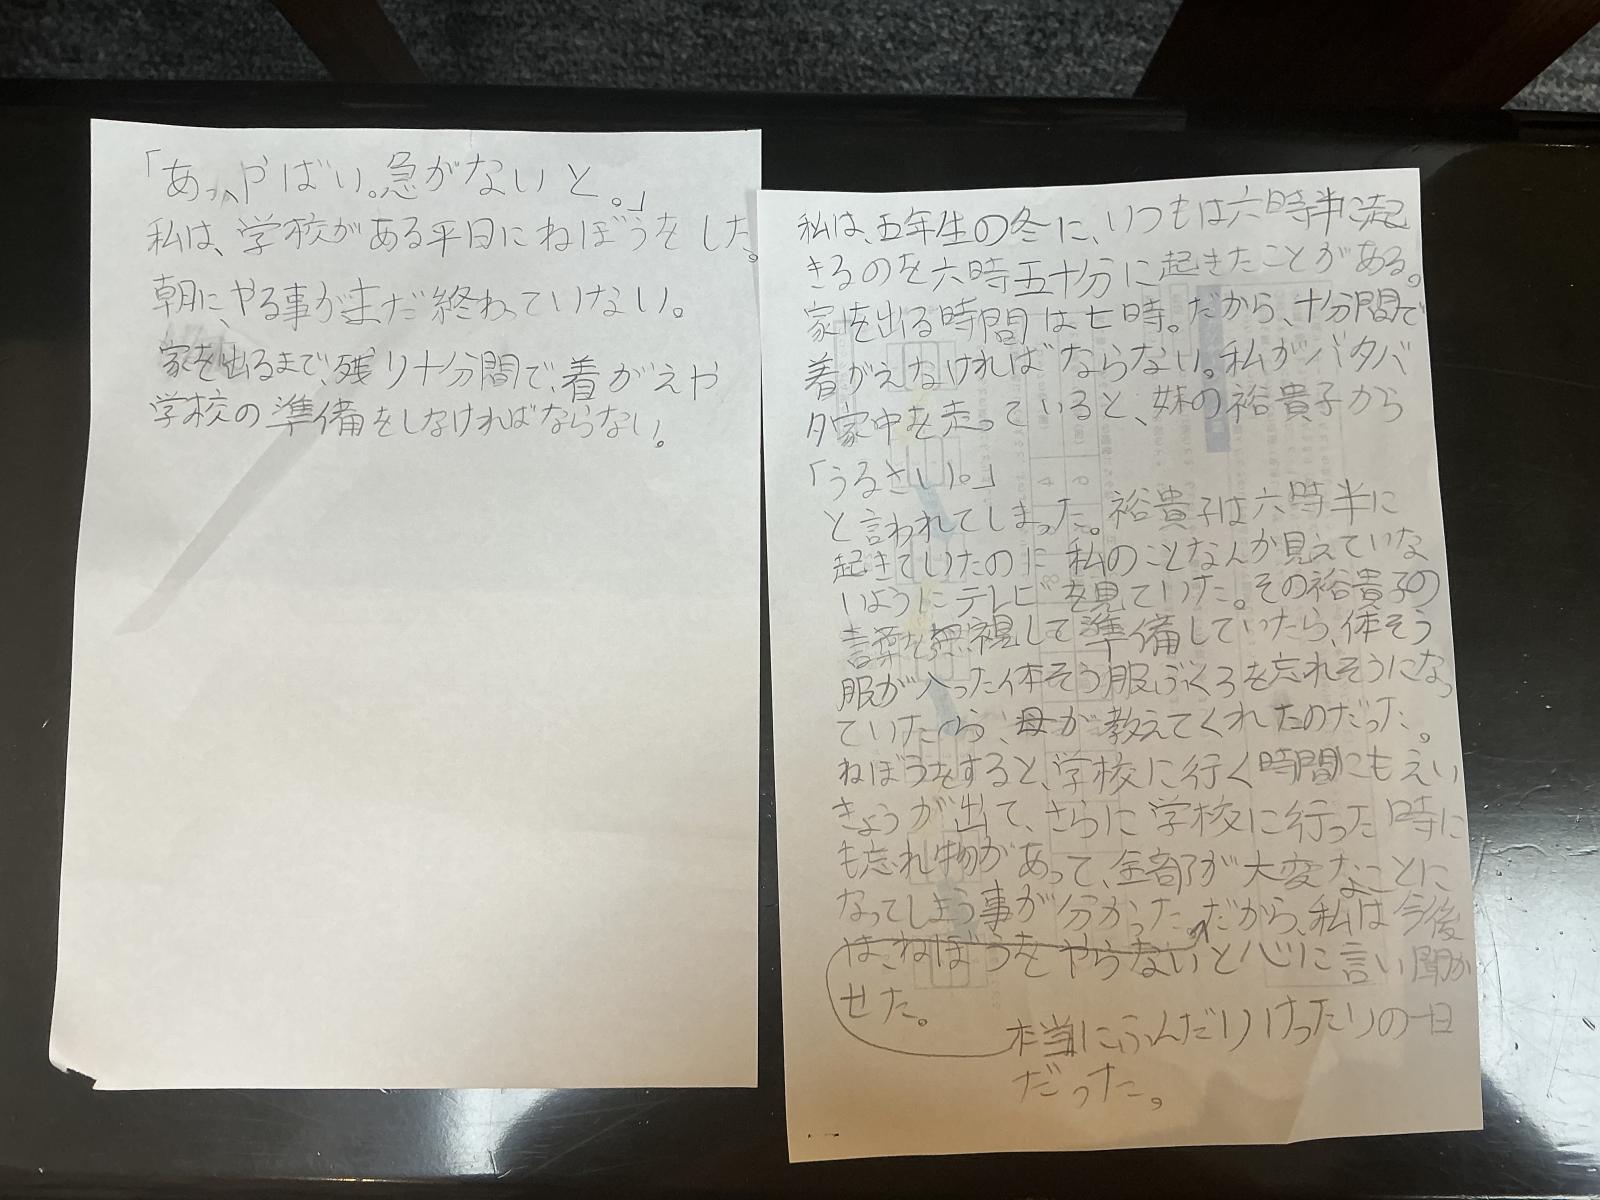 「あっ、やばい。急がないと。」
私は、学校がある平日にねぼうをした。
朝に、やる事がまだ終わっていない。
家を出るまで、残り十分間で、着がえや
学校の準備をしなければならない。
私は、五年生の冬に、いつもは六時半に起
きるのを六時五十分に起きたことがある。
家を出る時間は七時。だから、十分間で
着がえなければならない。私がバタバ
タ家中を走っていると、妹の裕貴子から
「うるさい。」
と言われてしまった。裕貴子は六時半に
起きていたのに私のことなんか見えていな
いようにテレビを見ていた。その裕貴子の
言葉を無視して準備していたら、体そう
服が入った体そう服ぶくろを忘れそうになっ
ていたら、母が教えてくれたのだった。
ねぼうをすると、学校に行く時間にもえい
きょうが出て、さらに学校に行った時に
も忘れ物があって、全部が大変なことに
なってしまう事が分かった。だから、私は今後
は、ねぼうをやらないと心に言い聞か
せた。
本当にふんだりけったりの一日
だった。